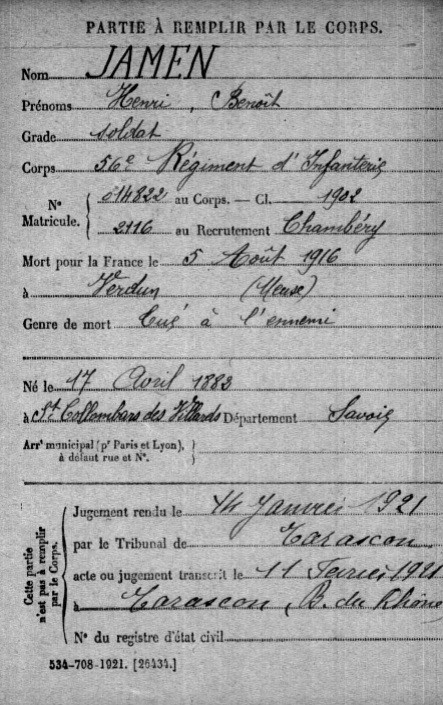 PARTIE À REMPLIR PAR LE CORPS.
Nom JAMEN
Prénoms Henri, Benoît
Grade soldat
Corps 56e Régiment d'Infanterie
N° Matricule. { 014822 au Corps. — Cl. 1902
2116 au Recrutement Chambéry
Mort pour la France le 5 Août 1916
à Verdun (Meuse)
Genre de mort Tué à l'ennemi
Né le 17 Avril 1882
à St Collomban des Villards Département Savoie
Arrt municipal (pr Paris et Lyon), à défaut rue et N°. }
Cette partie n'est pas à remplir par le Corps. {
Jugement rendu le 14 Janvier 1921
par le Tribunal de Tarascon
acte ou jugement transcrit le 11 Février 1921
à Tarascon, B. du Rhône
N° du registre d'état civil
534-708-1921. [26434.]